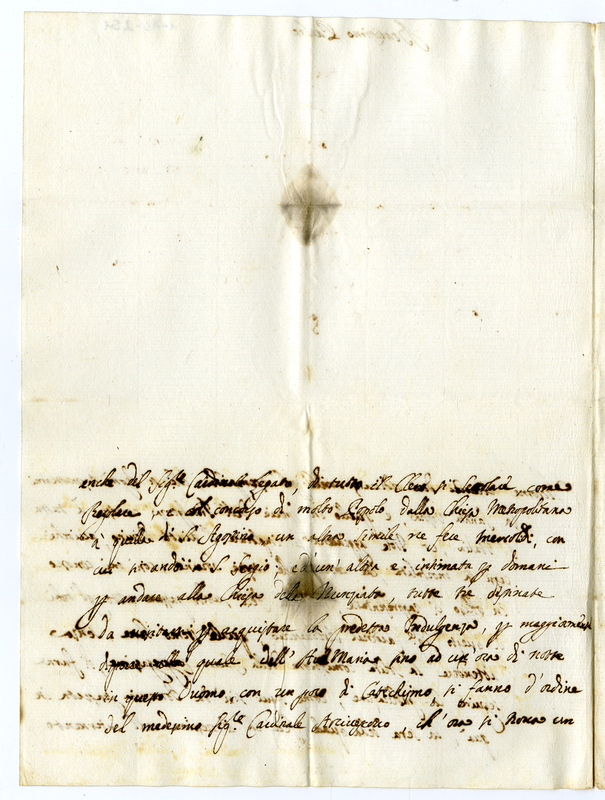 anche del Sig.le Cardinale Legato, di tutto il Clero sì Secolare, come
Regolare, e col concorso di molto Popolo dalla Chiesa Metropolitana
à quella di S. un altra simile se ne fece mercoldì, con
cui si andò à S. Sergio, ed un' altra e' intimata p domani
p andare alla Chiesa della Nunziata, tutte tre destinate
da visitarsi p acquistare la predetta Indulgenza, p maggiormente
quale dell' Ave Maria fino ad un' ora di notte
in questo Duomo, con un poco di Catechismo si fanno d'ordine
del medesimo Sig.le Cardinale Arcivescovo, ch' ora si trova un